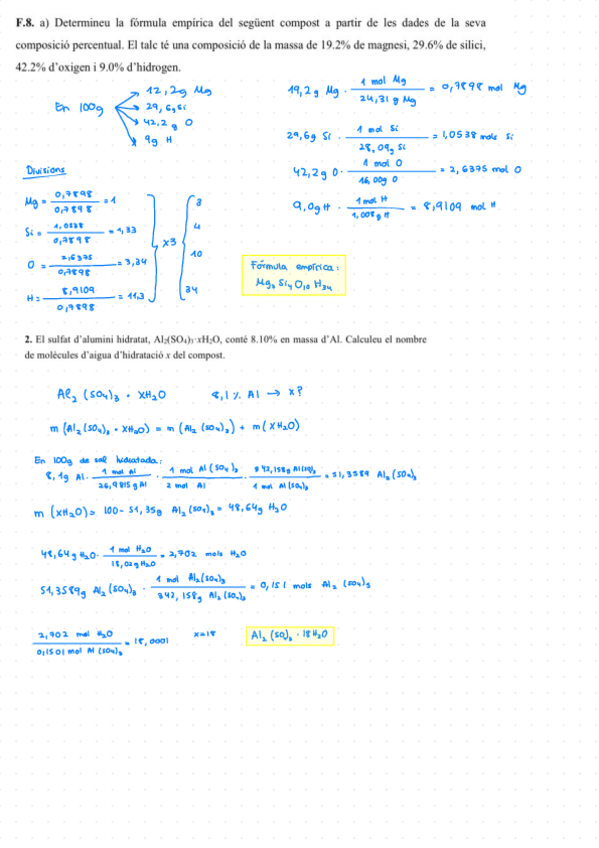 F.8. a) Determineu la fórmula empírica del següent compost a partir de les dades de la seva
composició percentual. El talc té una composició de la massa de 19.2% de magnesi, 29.6% de silici,
42.2% d'oxigen i 9.0% d'hidrogen.
En 100g
12,2g Mg
29,6g Si
42,2 g O
9g H
19,2 g Mg · 1 mol Mg / 24,31 g Mg = 0,7898 mol Mg
29,6g Si · 1 mol Si / 28,09g Si = 1,0538 mols Si
42,2g O · 1 mol O / 16,00g O = 2,6375 mol O
9,0g H · 1 mol H / 1,008g H = 8,9109 mol H
Divisions
Mg = 0,7898 / 0,7898 = 1
Si = 1,0538 / 0,7898 = 1,33
O = 2,6375 / 0,7898 = 3,34
H = 8,9109 / 0,7898 = 11,3
x3
3
4
10
34
Fórmula empírica:
Mg₃ Si₄ O₁₀ H₃₄
2. El sulfat d'alumini hidratat, Al₂(SO₄)₃·xH₂O, conté 8.10% en massa d'Al. Calculeu el nombre
de molècules d'aigua d'hidratació x del compost.
Al₂ (SO₄)₃ · XH₂O 8,1 % Al → x?
m (Al₂ (SO₄)₃ · XH₂O) = m (Al₂ (SO₄)₃) + m( X H₂O)
En 100g de sal hidratada:
8,1g Al · 1 mol Al / 26,9815 g Al · 1 mol Al (SO₄)₃ / 2 mol Al · 342,158g Al(SO₄)₃ / 1 mol Al (SO₄)₃ = 51,3589 Al₂ (SO₄)₃
m (XH₂O) = 100 - 51,35g Al₂ (SO₄)₃ = 48,64g H₂O
48,64g H₂O · 1 mol H₂O / 18,02g H₂O = 2,702 mols H₂O
51,3589g Al₂ (SO₄)₃ · 1 mol Al₂(SO₄)₃ / 342,158g Al₂ (SO₄)₃ = 0,151 mols Al₂ (SO₄)₃
2,702 mol H₂O / 0,1501 mol Al (SO₄)₃ = 18,0001 x=18 Al₂ (SO₄)₃ · 18 H₂O